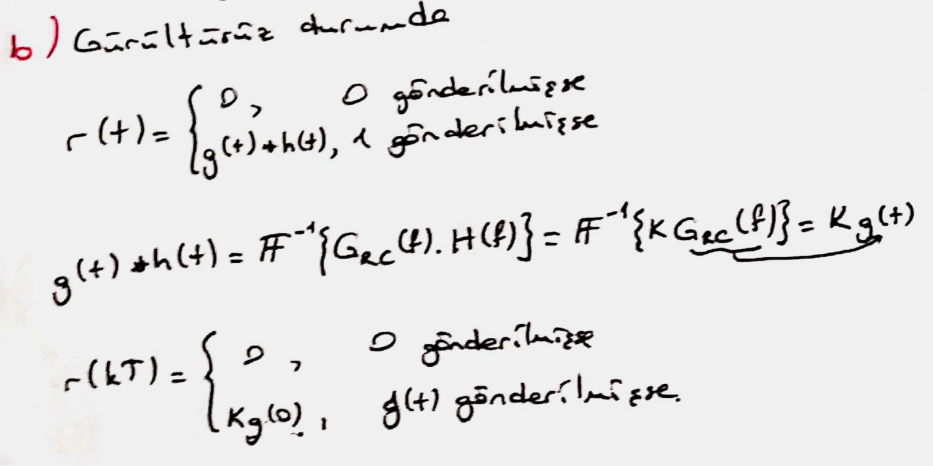 b) Gürültüsüz durumda
r(t) = { 0, 0 gönderilmişse
g(t)*h(t), 1 gönderilmişse
g(t)*h(t) = F⁻¹{G_RC(f).H(f)} = F⁻¹{K G_RC(f)} = K g(t)
r(kT) = { 0, 0 gönderilmişse
Kg(0), g(t) gönderilmişse.